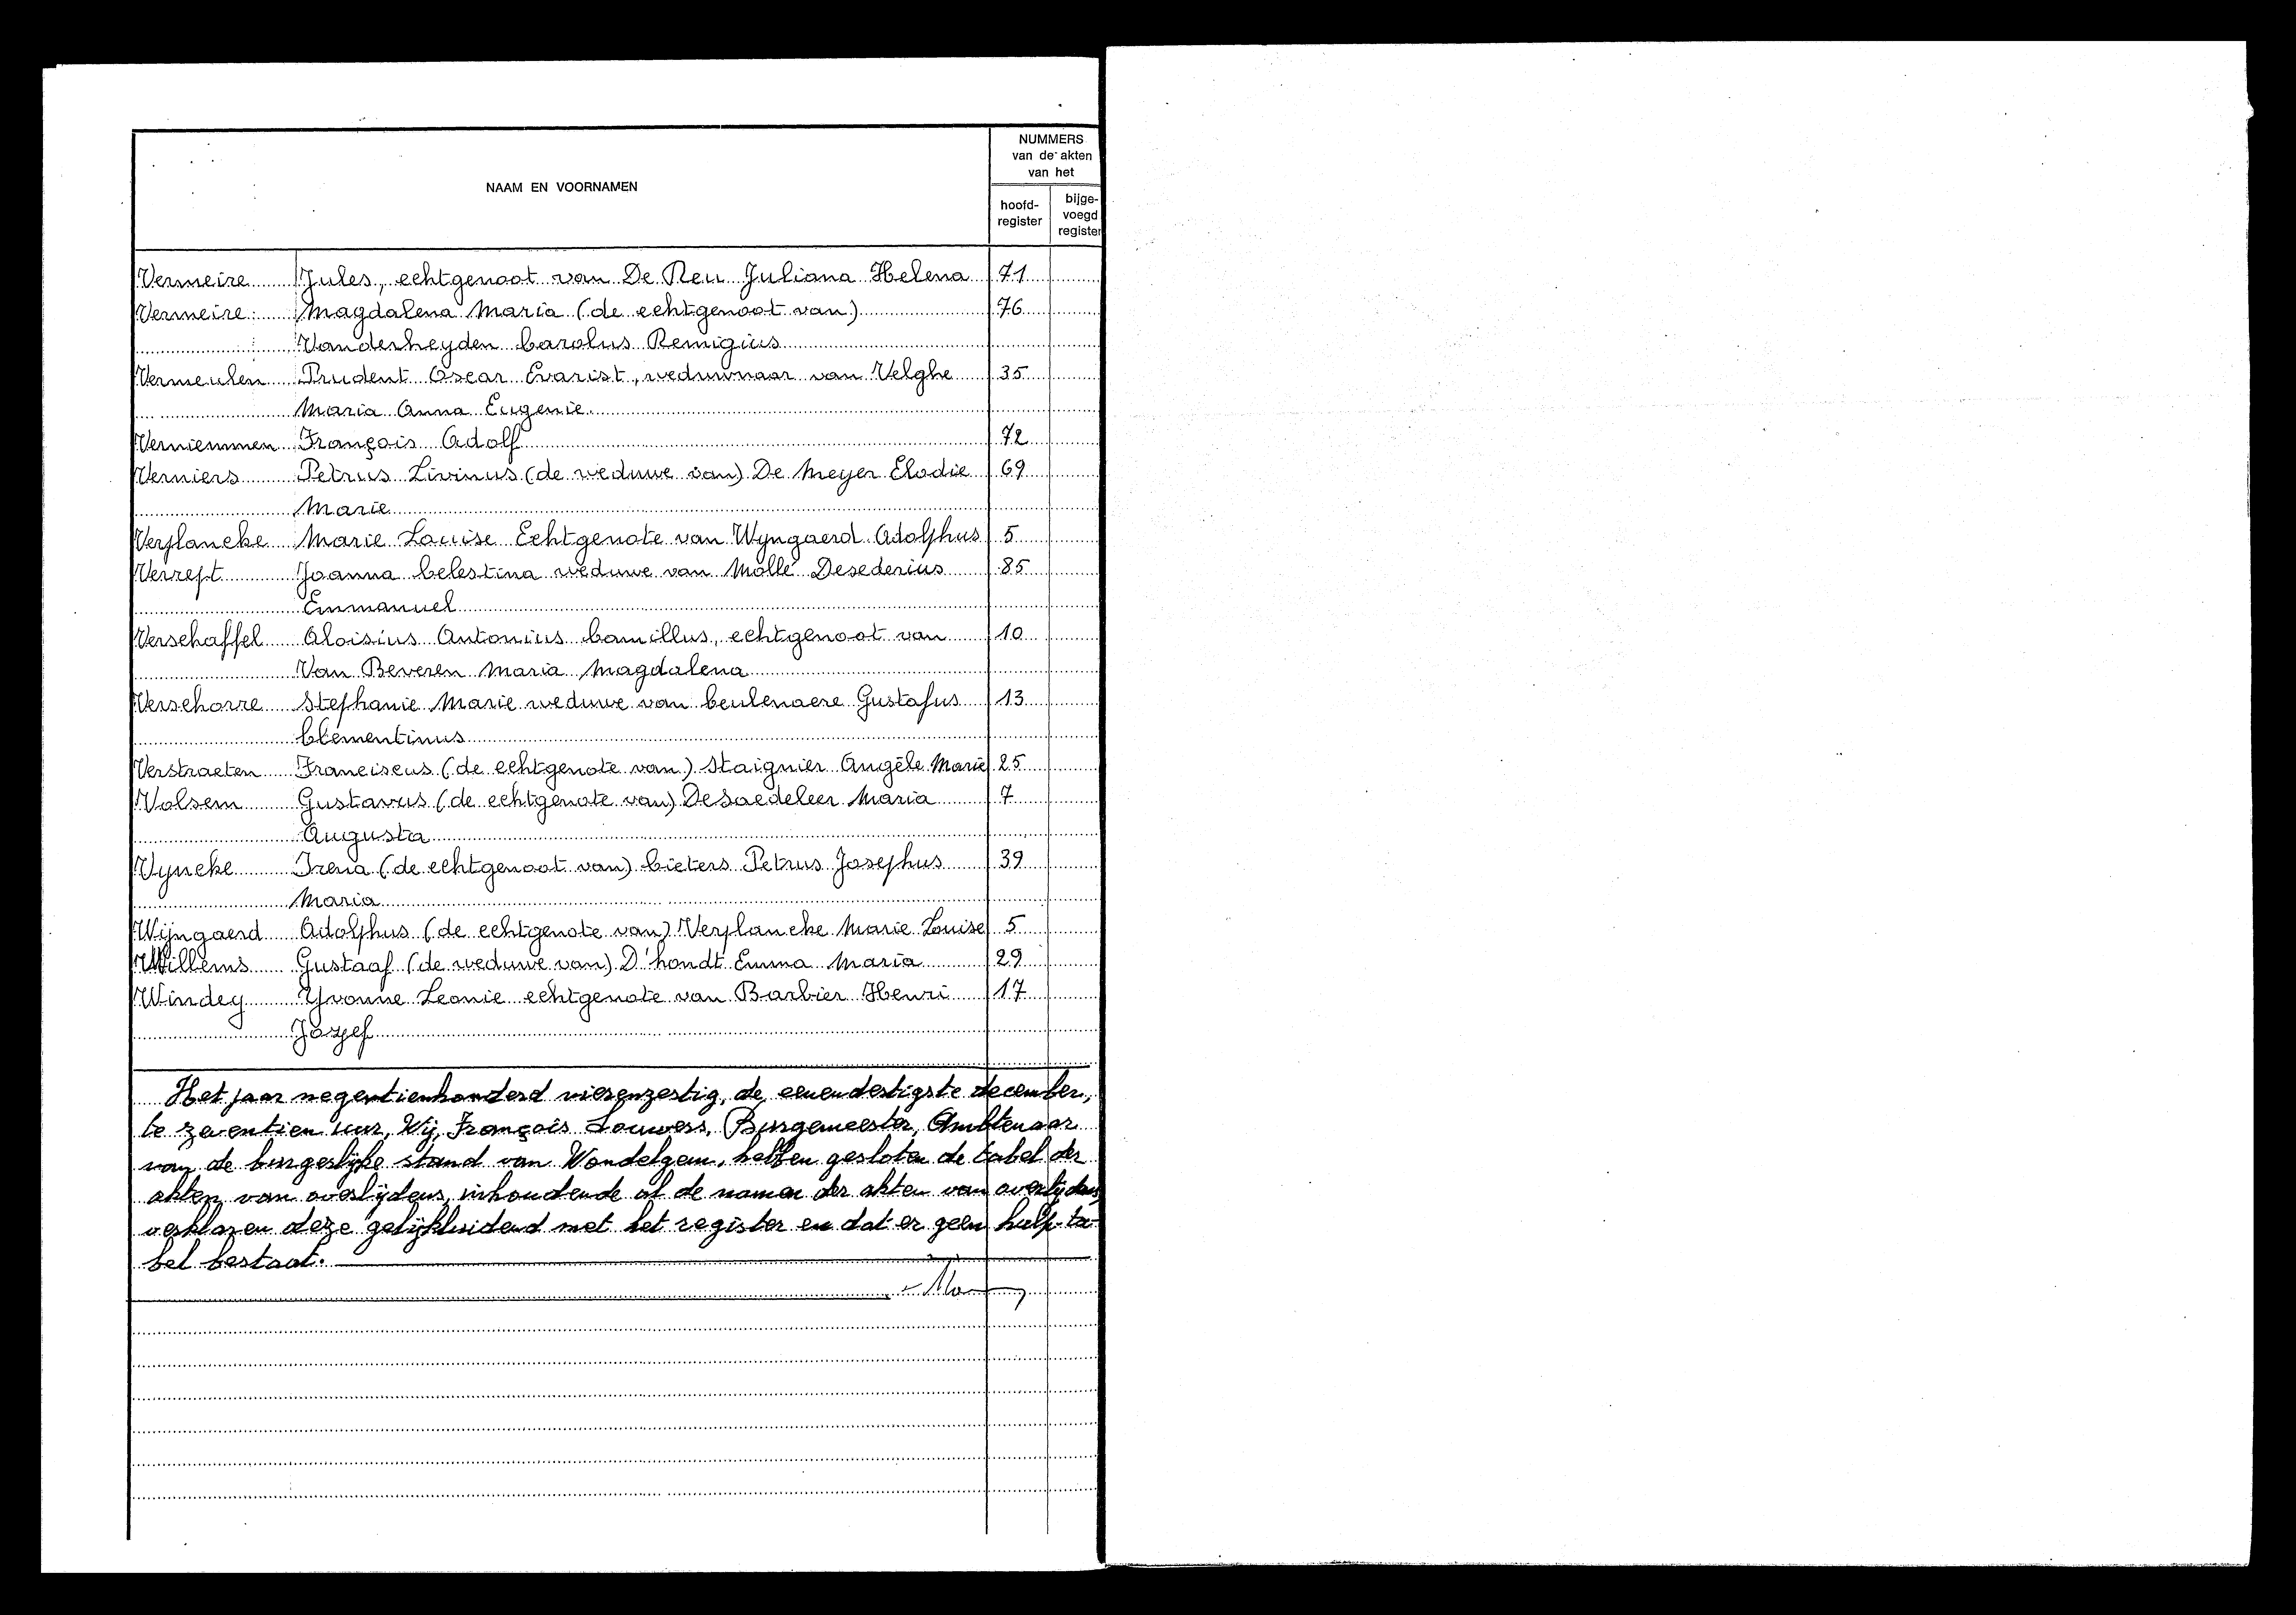 NAAM EN VOORNAMEN
NUMMERS
van de akten
van het
hoofd-
register
bijge-
voegd
register
Vermeire Jules, echtgenoot van De Reu Juliana Helena 71
Vermeire Magdalena Maria (de echtgenoot van) 76
Vanderheyden Carolus Remigius
Vermeulen Prudent Oscar Evarist, weduwnaar van Velghe 35
Maria Anna Eugenie
Verniemmen François Adolf 72
Verniers Petrus Livinus (de weduwe van) De Meyer Elodie 69
Marie
Verplancke Marie Louise Echtgenote van Wyngaerd Adolphus 5
Verrept Joanna Celestina weduwe van Mollé Desederius 85
Emmanuel
Verschaffel Aloisius Antonius Camillus, echtgenoot van 10
Van Beveren Maria Magdalena
Verschorre Stephanie Marie weduwe van Ceulenaere Gustafus 13
Clementinus
Verstraeten Franciscus (de echtgenote van) Staignier Angèle Marie 25
Volsem Gustavus (de echtgenote van) De Saedeleer Maria 7
Augusta
Vyncke Irena (de echtgenoot van) Cieters Petrus Josephus 39
Maria
Wijngaerd Adolphus (de echtgenote van) Verplancke Marie Louise 5
Willems Gustaaf (de weduwe van) D'hondt Emma Maria 29
Windey Yvonne Leonie echtgenote van Barbier Henri 17
Jozef
Het jaar negentienhonderd vierenzestig, de eenendertigste december,
te zeventien uur, Wij, François Louwers, Burgemeester, Ambtenaar
van de burgerlijke stand van Wondelgem, hebben gesloten de tabel der
akten van overlijdens, inhoudende al de namen der akten van overlijdens,
verklaren deze gelijkluidend met het register en dat er geen hulp-ta-
bel bestaat.